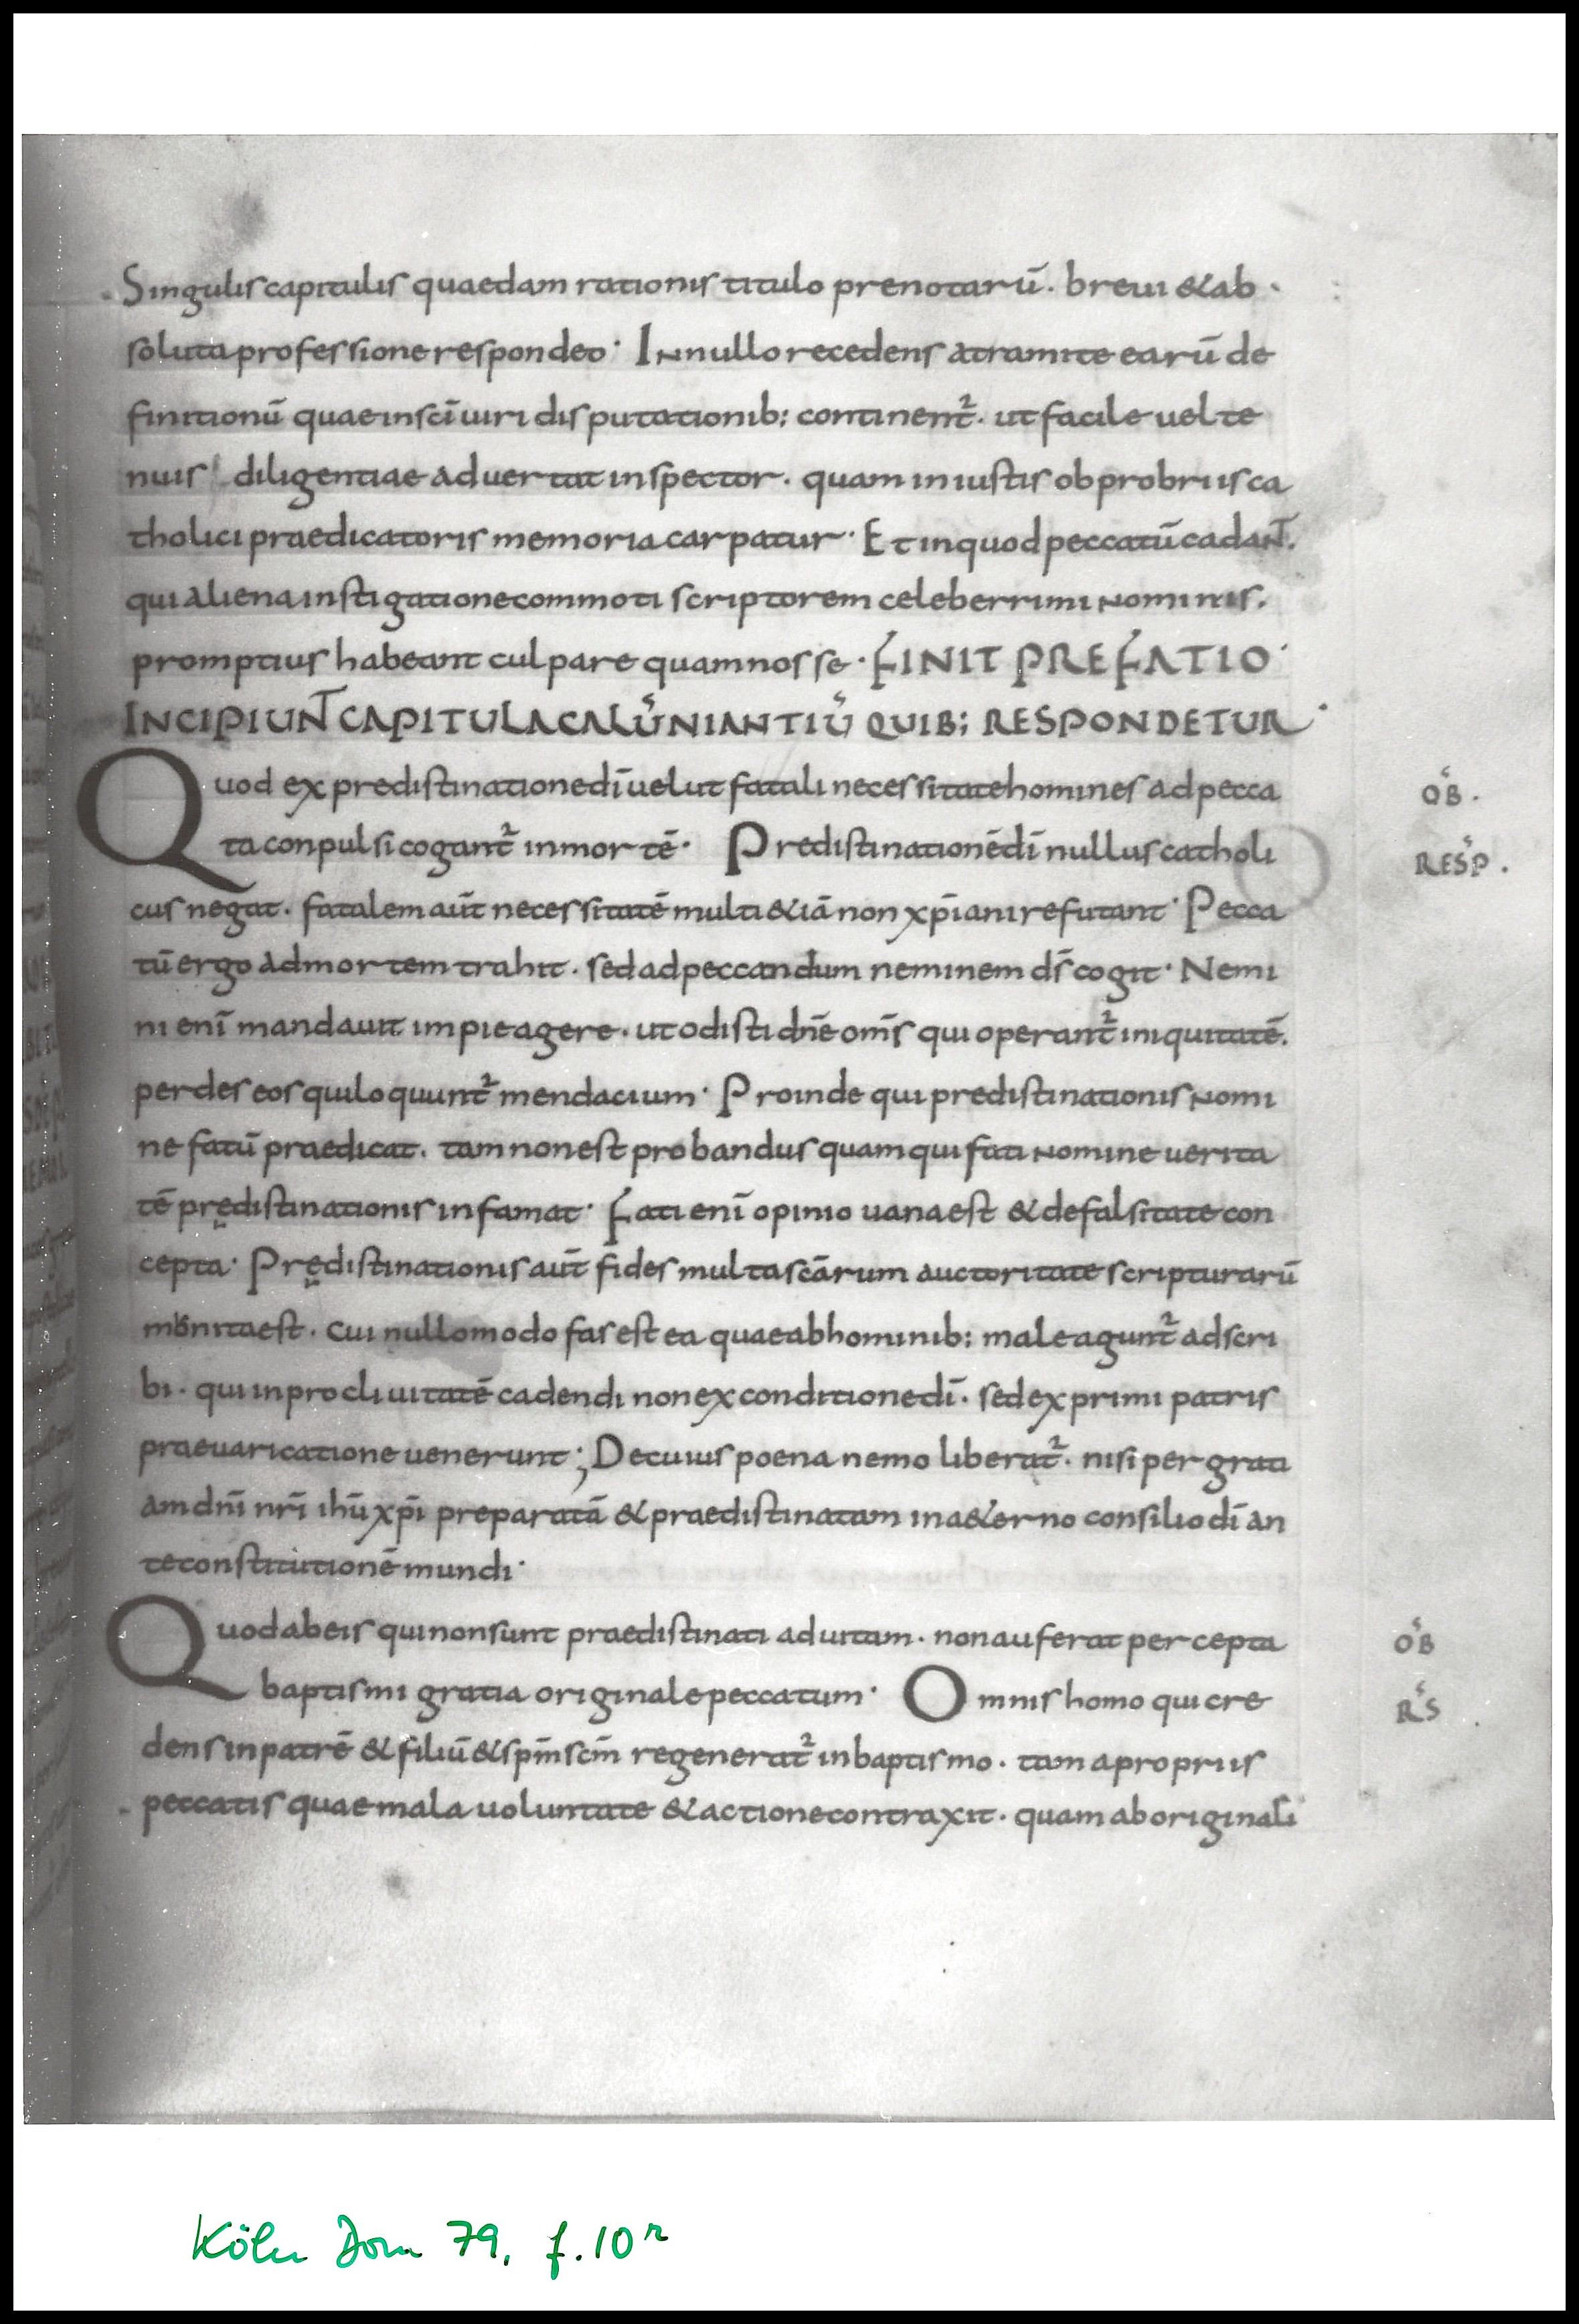 Singulis capitulis quaedam rationis titulo prenotarū. breui & ab
soluta professione respondeo· In nullo recedens a tramite earū de
finitionū quae in sc̄i uiri disputationib; continent᷑. ut facile uel te
nuis diligentiae aduertat inspector. quam iniustis obprobriis ca
tholici praedicatoris memoria carpatur· Et in quod peccatū cadan̄t.
qui aliena instigatione commoti scriptorem celeberrimi nominis.
promptius habeant culpare quam nosse· FINIT PREFATIO·
INCIPIUN̄T CAPITULA CALŪNIANTIŪ QUIB; RESPONDETUR·
Quod ex predistinatione dī uelut fatali necessitate homines ad pecca OB.
ta conpulsi cogant᷑ in mortē· Predistinationē dī nullus catholi RESP.
cus negat. fatalem aūt necessitatē multi & iā non xp̄iani refutant· Pecca
tū ergo ad mortem trahit. sed ad peccandum neminem ds̄ cogit· Nemi
ni enī mandauit impie agere. ut odisti dn̄e om̄s qui operant᷑ iniquitatē.
perdes eos qui loquunt᷑ mendacium· Proinde qui predistinationis nomi
ne fatū praedicat. tam non est probandus quam qui fati nomine uerita
tē prędistinationis infamat· Fati enī opinio uana est & de falsitate con
cepta· Prędistinationis aūt fides multa sc̄arum auctoritate scripturarū
monita est. cui nullo modo fas est ea quae ab hominib; male agunt᷑ adscri
bi. qui in procliuitatē cadendi non ex conditione dī. sed ex primi patris
praeuaricatione uenerunt; De cuius poena nemo liberat᷑. nisi per grati
am dn̄i nr̄i ih̄u xp̄i preparatā & praedistinatam in a&erno consilio dī an
te constitutionē mundi·
Quod ab eis qui non sunt praedistinati ad uitam. non auferat percepta OB
baptismi gratia originale peccatum· Omnis homo qui cre RS
dens in patrē & filiū & sp̄m sc̄m regenerat᷑ in baptismo. tam a propriis
peccatis quae mala uoluntate & actione contraxit. quam ab originali
Köln Dom 79, f. 10r